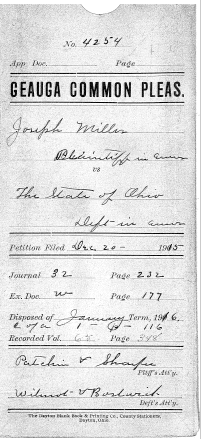 No. 4254
App. Doc. Page
GEAUGA COMMON PLEAS.
Joseph Miller
Plaintiff in error
vs
The State of Ohio
Deft in error
Petition Filed Dec. 20 - 1915
Journal 32 Page 232
Ex. Doc. W Page 177
Disposed of January Term, 1916.
C of a 1 - 116
Recorded Vol. 65 Page
Patchin & Sharpe
Pltff's Att'y.
Wilmot & Bostwick
Deft's Att'y.
The Dayton Blank Book & Printing Co., County Stationers,
Dayton, Ohio.